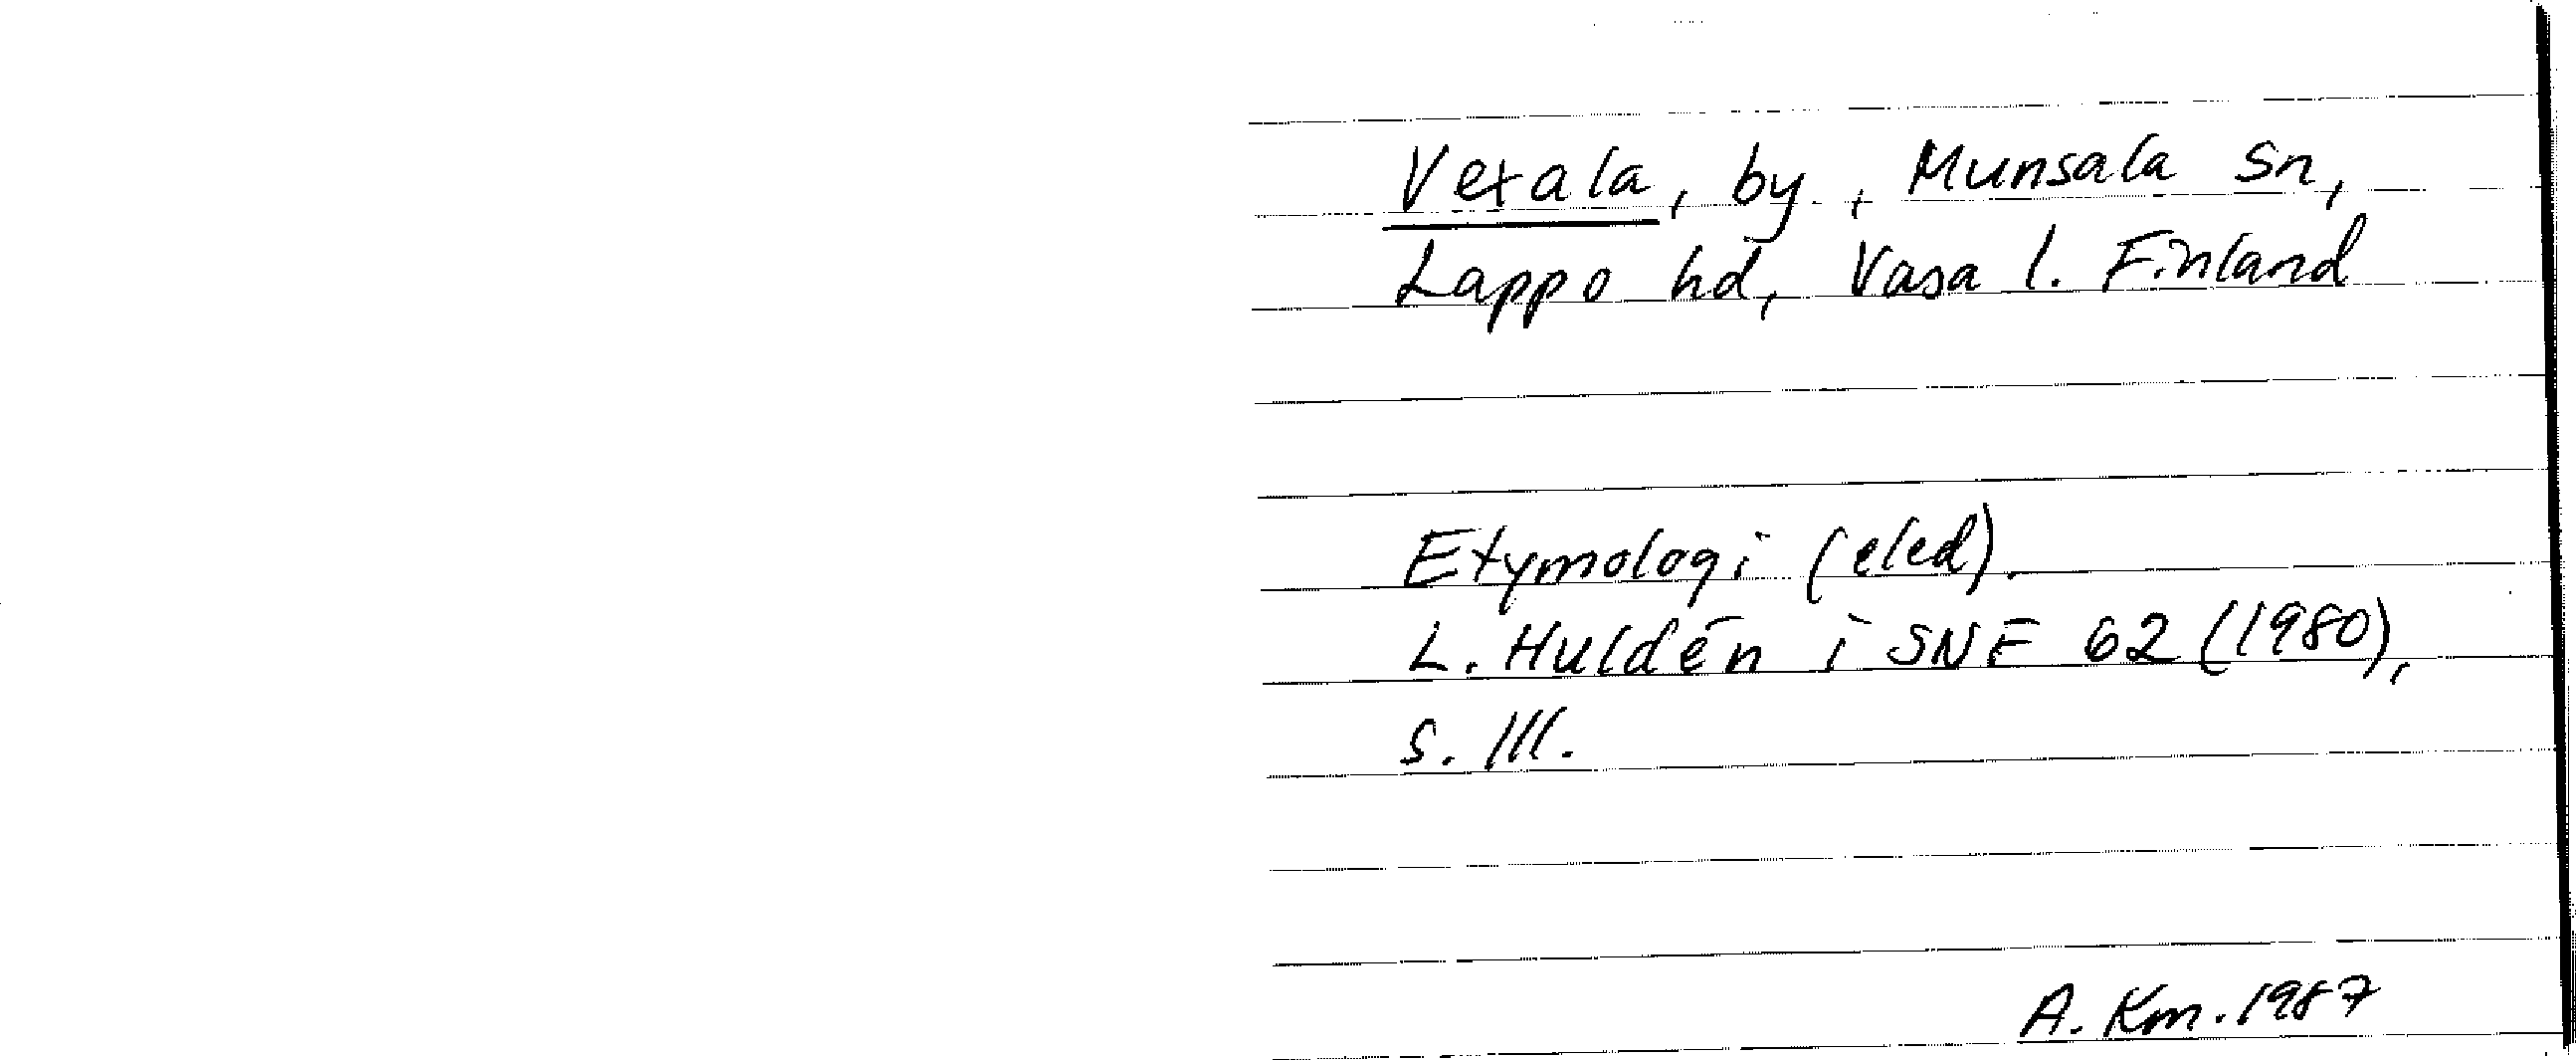 Vexala, by, Munsala sn,
Lappo hd, Vasa l. Finland
Etymologi (eled).
L. Huldén i SNF 62 (1980),
s. 111.
A. Km. 1987